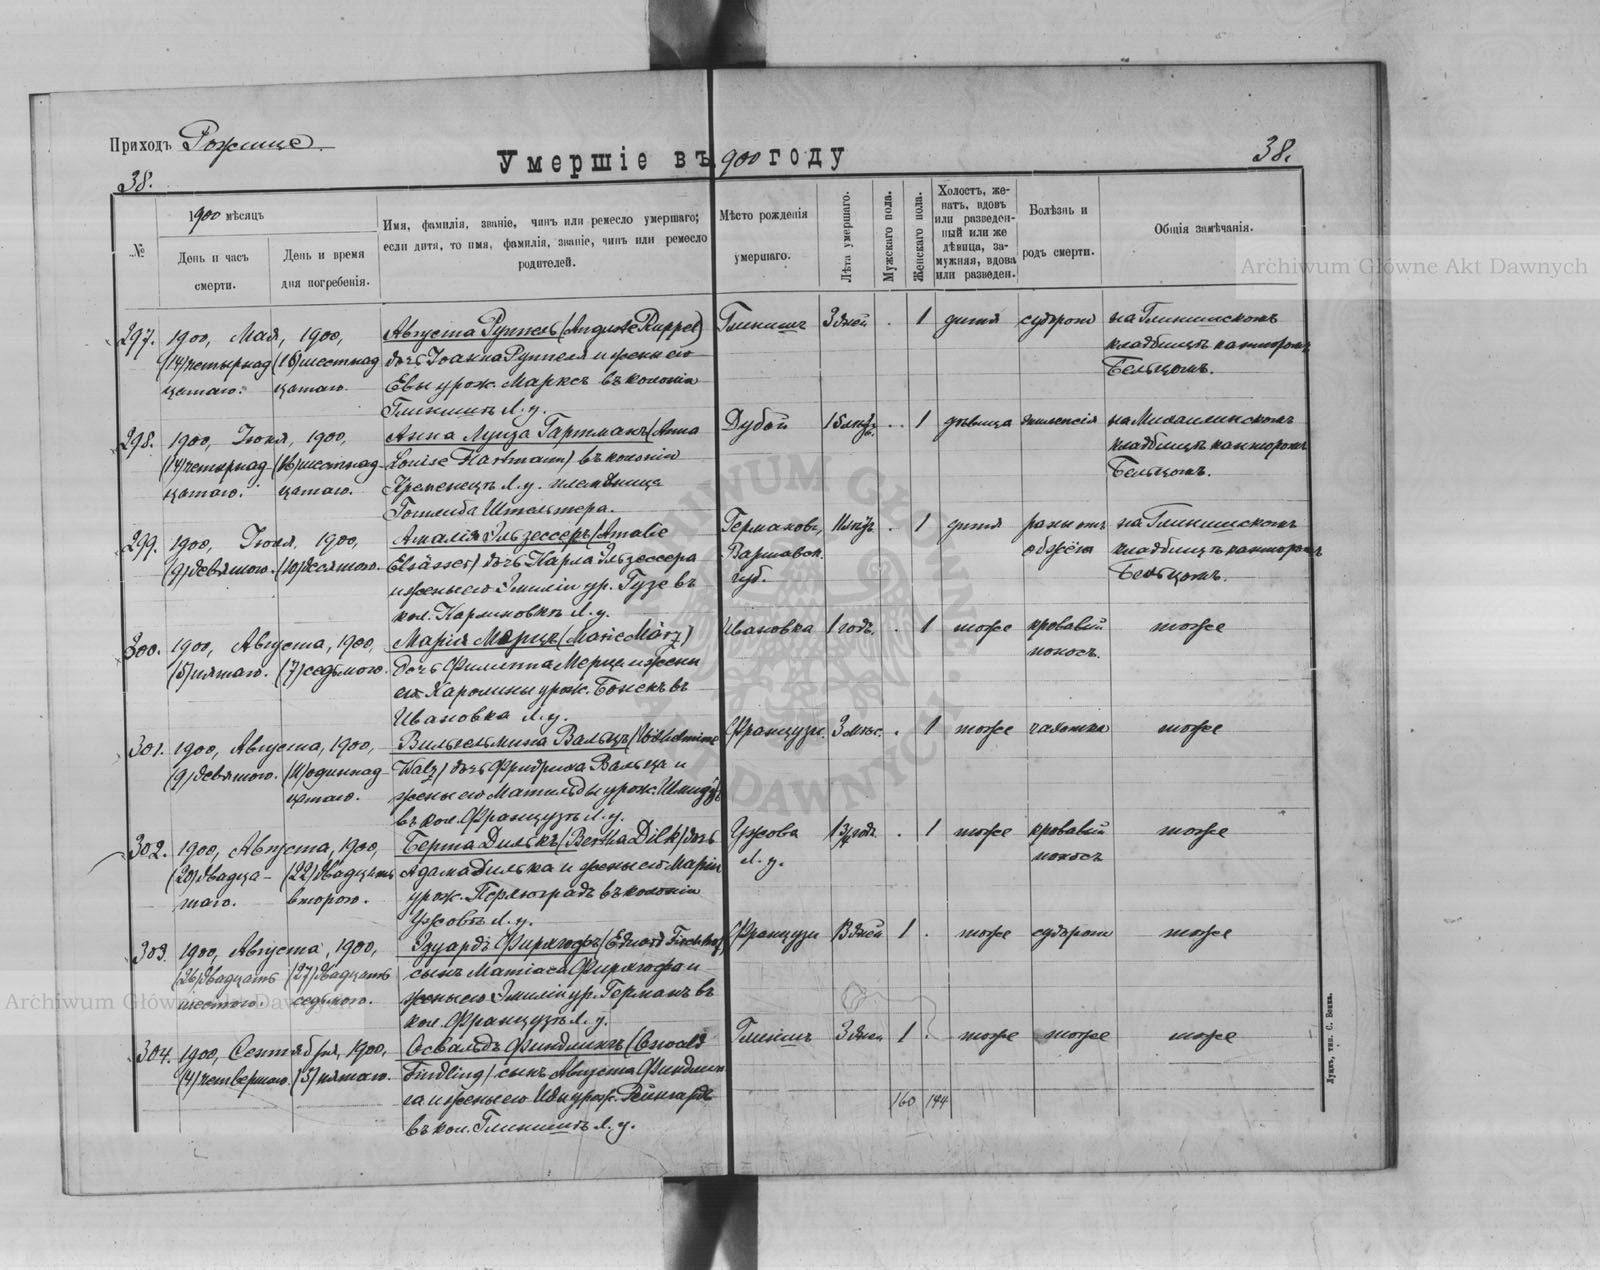 Приходъ Рожище.
Умершіе въ 1900 году
38.
38.
№
1900 мѣсяцъ
День и часъ смерти.
День и время дня погребенія.
Имя, фамилія, званіе, чинъ или ремесло умершаго;
если дитя, то имя, фамилія, званіе, чинъ или ремесло
родителей.
Мѣсто рожденія
умершаго.
Лѣта умершаго.
Мужскаго пола.
Женскаго пола.
Холостъ, же-
натъ, вдовъ
или разведен-
ный или же
дѣвица, за-
мужняя, вдова
или разведен.
Болѣзнь и
родъ смерти.
Общія замѣчанія.
297. 1900, Мая, 1900, Августа Руппель (Auguste Ruppel) Глинищ 3 дней . 1 дитя судороги на Глинищскомъ
(14) четырнад (16) шестнад дочь Іоанна Руппеля и жены его кладбищѣ канторомъ
цатаго. цатаго. Евы урож. Марксъ въ колоніи Бельцомъ.
Глинищѣ Л. у.
298. 1900, Іюня, 1900, Анна Луиза Гартманъ (Anna Дубой . . 1 дѣвица эпилепсія на Михалинскомъ
(14) четырнад (16) шестнад- Louise Hartmann) въ колоніи кладбищѣ канторомъ
цатаго. цатаго. Кременецъ Л. у. племянница Бельцомъ.
Готлиба Штельтера.
299. 1900, Іюня, 1900, Амалія Эльзессеръ (Amalie . 1 дитя раны отъ на Глинищскомъ
(9) девятого. (10) десятого. Elsässer) дочь Карла Эльзессера Варшавск. обжёга кладбищѣ канторомъ
и жены его Эмиліи ур. Гузе въ губ. Бельцомъ.
кол. Карлиновкѣ Л. у.
300. 1900, Августа, 1900, Марія Мерцъ (Marie März) Ивановка 1 годъ. . 1 тоже кровавый тоже
(5) пятаго. (7) седьмого. дочь Филиппа Мерца и жены поносъ.
его Каролины урож. въ
Ивановка Л. у.
301. 1900, Августа, 1900, Вильгельмина Вальцъ (Wilhelmine Французи. 3 мѣс. . 1 тоже чахотка тоже
(9) девятого. (11) одиннад- Walz) дочь Фридриха Вальца и
цтаго. жены его Матильды урож. Шмидтъ
въ кол. Французѣ Л. у.
302. 1900, Августа, 1900, Берта Дилькъ (Bertha Dilk) дочь Ужова 1 3/4 годъ . 1 тоже кровавый тоже
(20) двадца- (22) двадцать Адама Дилька и жены его Маріи Л. у. поносъ
таго. второго. урож. въ колоніи
Ужовѣ Л. у.
303. 1900, Августа, 1900, Эдуардъ (Eduard Французи 13 дней 1 . тоже судороги тоже
(26) двадцать (27) двадцать сынъ Матіаса и
шестого. седьмого. жены его Эмиліи ур. Германъ въ
кол. Французѣ Л. у.
304. 1900, Сентября, 1900, Освальдъ Финдлингъ (Oswald Глинищ 3 дней 1 . тоже тоже тоже
(4) четвертаго. (5) пятаго. Findling) сынъ Августа Финдлин
га и жены его Иды урож. Рейнгардъ
въ кол. Глинищѣ Л. у.
160 144
Луцкъ, тип. С. Бонка.
Archiwum Główne Akt Dawnych
Archiwum Główne Akt Dawnych
ARCHIWUM GŁÓWNE AKT DAWNYCH